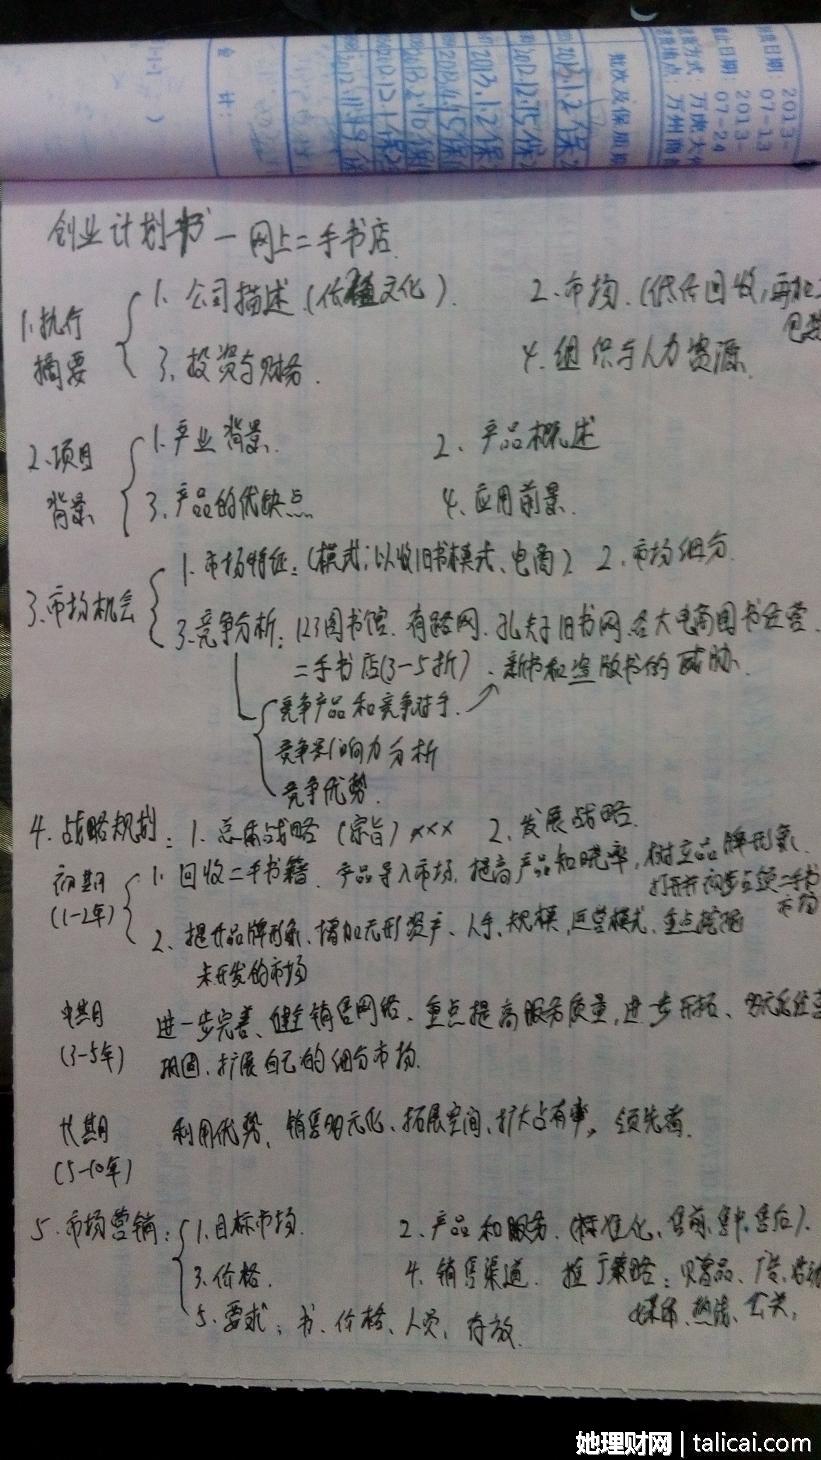 创业计划书—网上二手书店.
1.执行摘要
1. 公司描述.(价值文化).
2.市场.(低价回收,再加工包装
3. 投资与财务.
4. 组织与人力资源.
2.项目背景
1.产业背景.
2、产品概述
3.产品的优缺点
4、应用前景.
3.市场机会
1.市场特征:(模式;以收旧书模式、电商) 2.市场细分.
3.竞争分析:123图书馆.有路网.孔夫子旧书网.各大电商图书经营.
二手书店(3-5折).新书和盗版书的威胁.
竞争产品和竞争对手.
竞争影响力分析
竞争优势.
4.战略规划: 1.总体战略(宗旨)××× 2.发展战略.
初期(1-2年)
1. 回收二手书籍.产品导入市场,提高产品知晓率,树立品牌形象.
打开并初步占领二手书市场
2、提升品牌形象、增加无形资产、人手、规模,运营模式、重点挖掘
未开发的市场
中期(3-5年)
进一步完善、健全销售网络.重点提高服务质量,进一步开拓、多元化经营
巩固、扩展自己的细分市场.
长期(5-10年)
利用优势、销售多元化、拓展空间、扩大占有率。领先者.
5.市场营销:
1.目标市场.
2、产品和服务.(标准化、售前、售中、售后).
3.价格.
4.销售渠道. 推广策略:赠品、广告、
媒体、热情、公关,
5.要求:书、价格、人员、存放.
2013-
07-13
2013-
07-24
批次及保质期
合计:
她理财网 | talicai.com